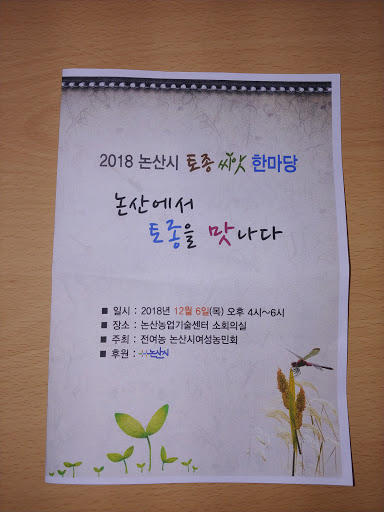 2018 논산시 토종 씨앗 한마당
논산에서
토종을 맛나다
■ 일시 : 2018년 12월 6일(목) 오후 4시~6시
■ 장소 : 논산농업기술센터 소회의실
■ 주최 : 전여농 논산시여성농민회
■ 후원 : 논산시